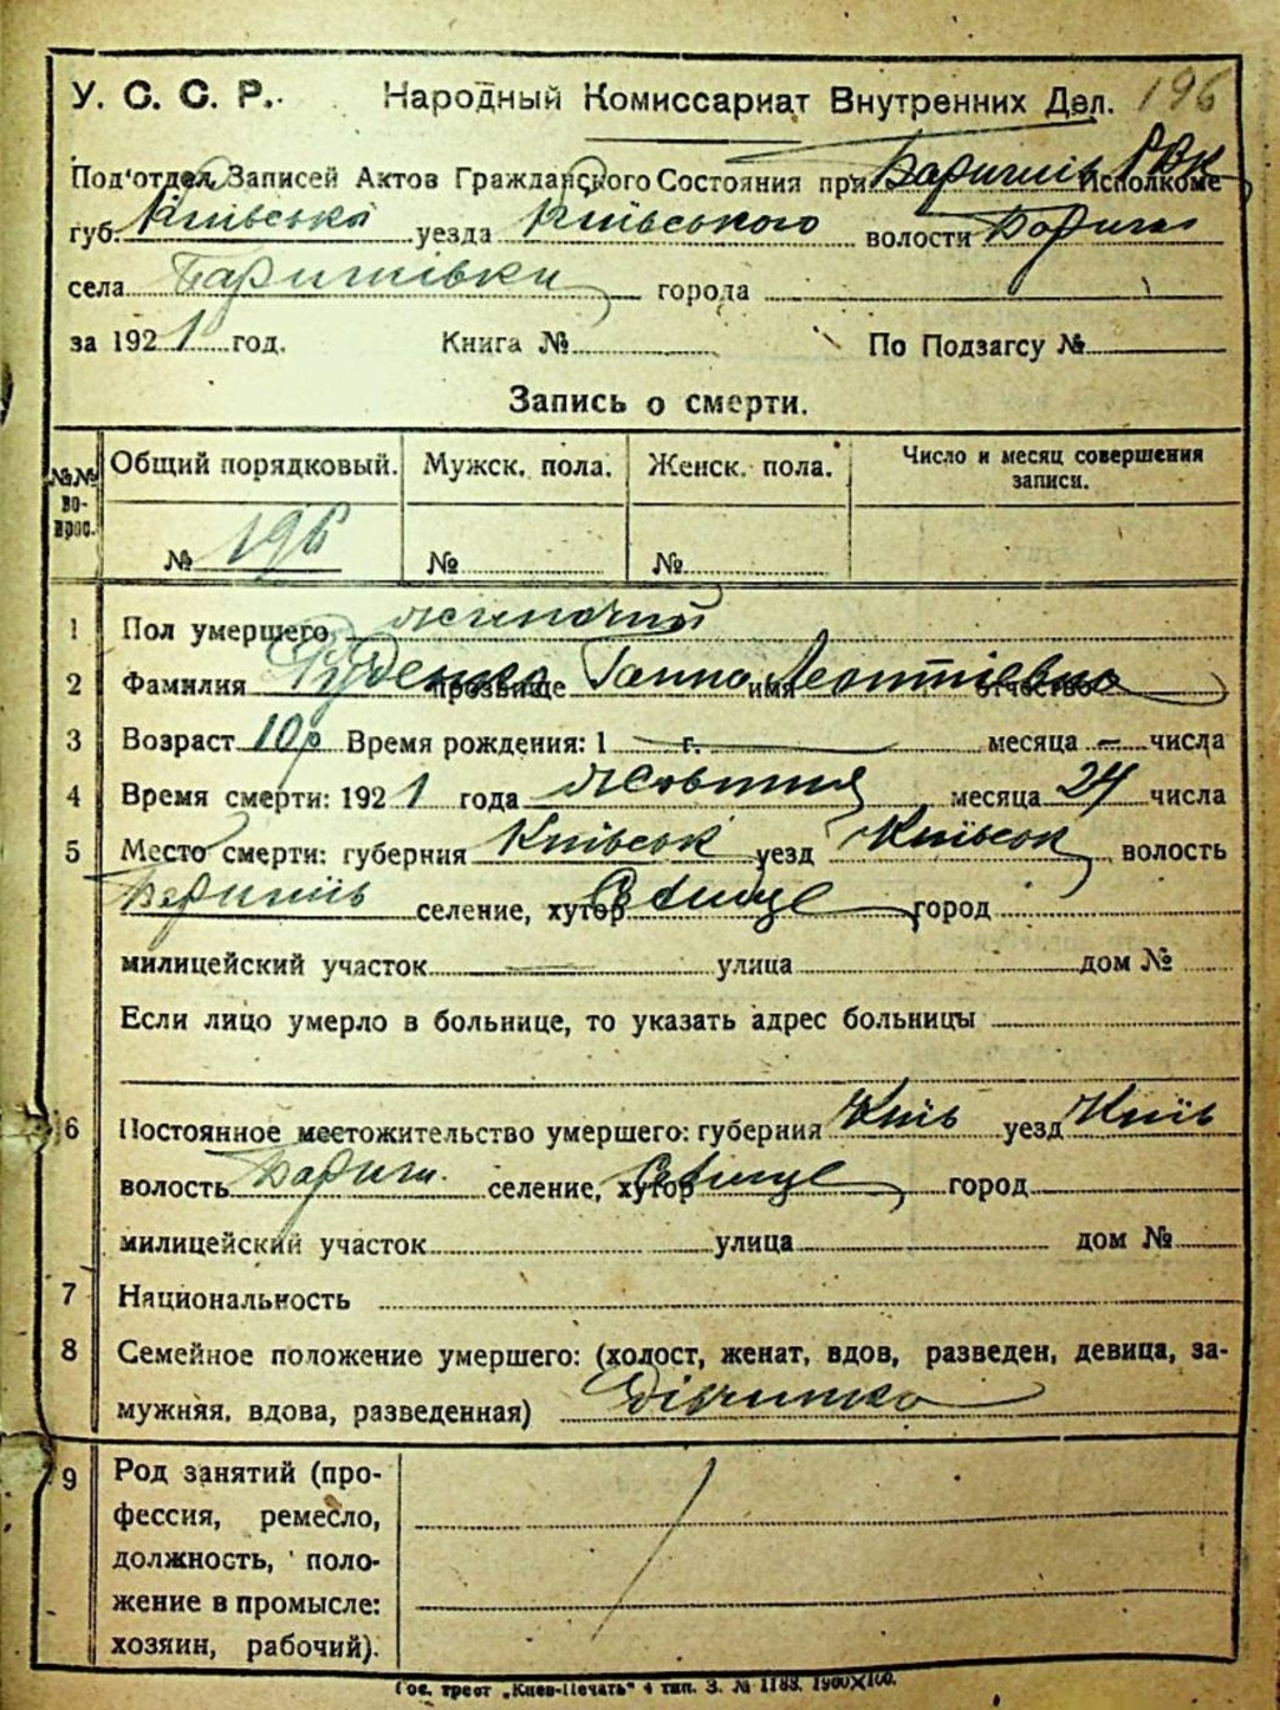 У. С. С. Р. Народный Комиссариат Внутренних Дел. 196
Под'отдел Записей Актов Гражданского Состояния при Баришів РВК Исполкоме
губ. Київська уезда Київського волости Бориш
села Баришівки города
за 1921 год. Книга № По Подзагсу №
Запись о смерти.
№№ во-прос. Общий порядковый. Мужск. пола. Женск. пола. Число и месяц совершения записи.
№ 196 № №
1 Пол умершего жиночий
2 Фамилия Руденко прозвище Ганна имя Леонтіевна отчество
3 Возраст 10р Время рождения: 1 г. месяца числа
4 Время смерти: 1921 года жовтня месяца 24 числа
5 Место смерти: губерния Київськ уезд Київськ волость
Баришів селение, хутор город
милицейский участок улица дом №
Если лицо умерло в больнице, то указать адрес больницы
6 Постоянное местожительство умершего: губерния Київ уезд Київ
волость Бариш. селение, хутор город
милицейский участок улица дом №
7 Национальность
8 Семейное положение умершего: (холост, женат, вдов, разведен, девица, за-
мужняя, вдова, разведенная) дівчинка
9 Род занятий (про-
фессия, ремесло,
должность, поло-
жение в промысле:
хозяин, рабочий).
Гос. трест „Киев-Печать“ 4 тип. З. № 1188. 1900×100.